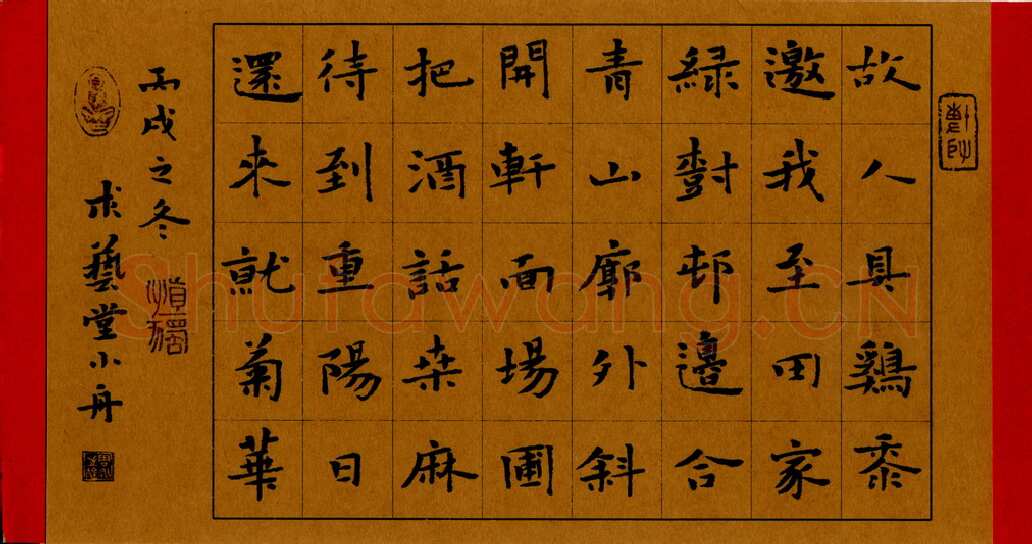 故人具鷄黍
邀我至田家
緑樹邨邊合
青山廓外斜
開軒面場圃
把酒話桒麻
待到重陽日
還來就菊華
丙戌之冬
慎獨
求藝堂小舟
Shufawang.CN